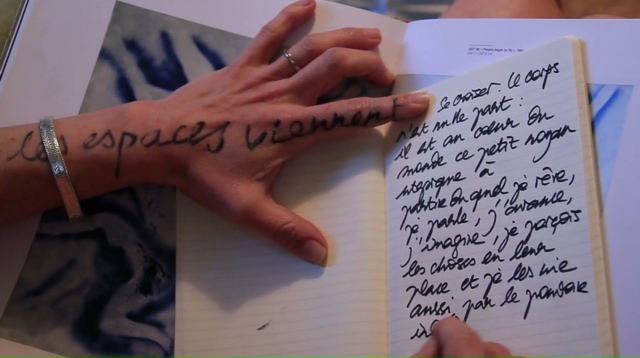 les espaces viennent
se croiser. Le corps
n'est nulle part :
il est au cœur du
monde ce petit noyau
utopique à
partir duquel je rêve,
je parle, j'avance,
j'imagine, je perçois
les choses en leur
place et je les nie
aussi par le pouvoir